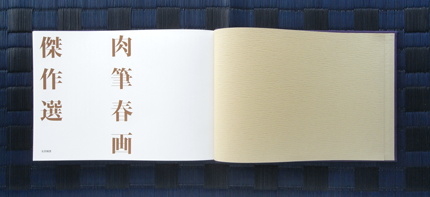 肉筆春画
傑作選